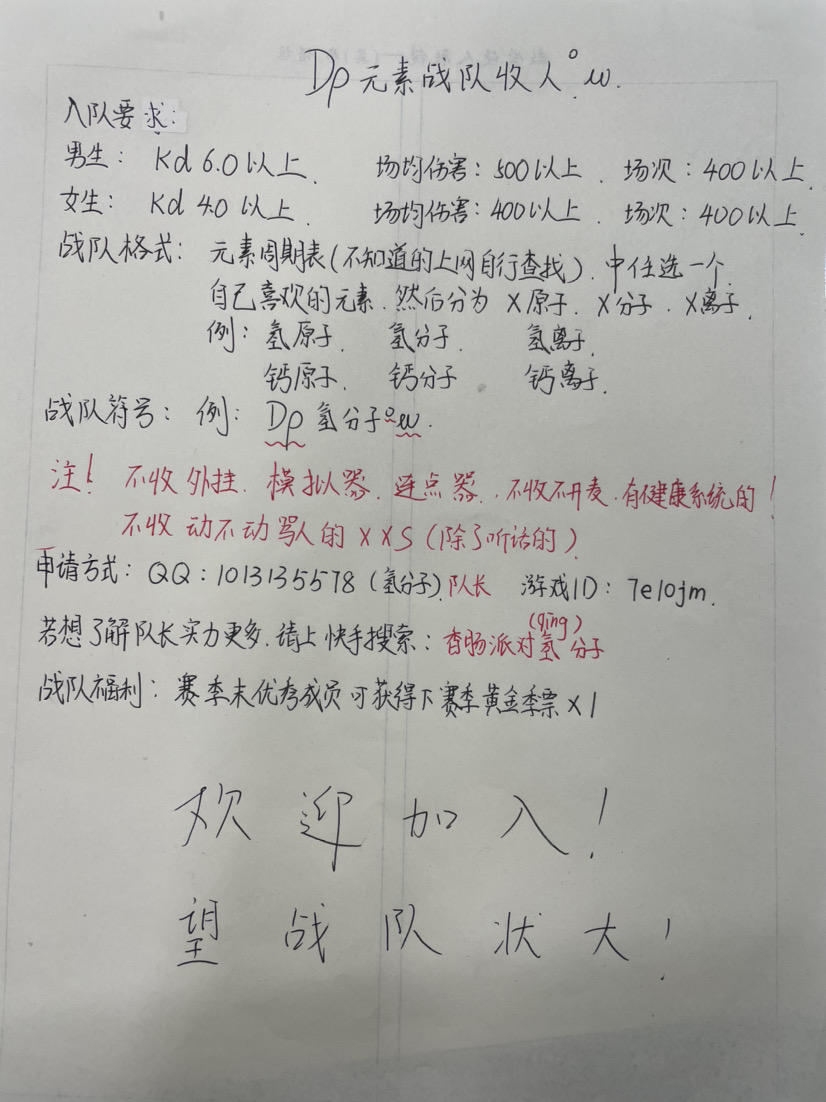 Dp元素战队收人°w.
入队要求:
男生: Kd 6.0以上. 场均伤害: 500以上. 场次: 400以上.
女生: Kd 4.0以上. 场均伤害: 400以上. 场次: 400以上.
战队格式: 元素周期表(不知道的上网自行查找). 中任选一个
自己喜欢的元素. 然后分为 X原子. X分子. X离子.
例: 氢原子. 氢分子. 氢离子.
钙原子. 钙分子 钙离子.
战队符号: 例: Dp氢分子°w.
注! 不收外挂. 模拟器. 连点器. 不收不开麦. 有健康系统的!
不收动不动骂人的XXS(除了听话的)
申请方式: QQ: 1013135578 (氢分子). 队长 游戏ID: 7e10jm.
(qing)
若想了解队长实力更多. 请上快手搜索: 香肠派对氢分子
战队福利: 赛季末优秀成员可获得下赛季黄金季票X1
欢迎加入!
望战队状大!